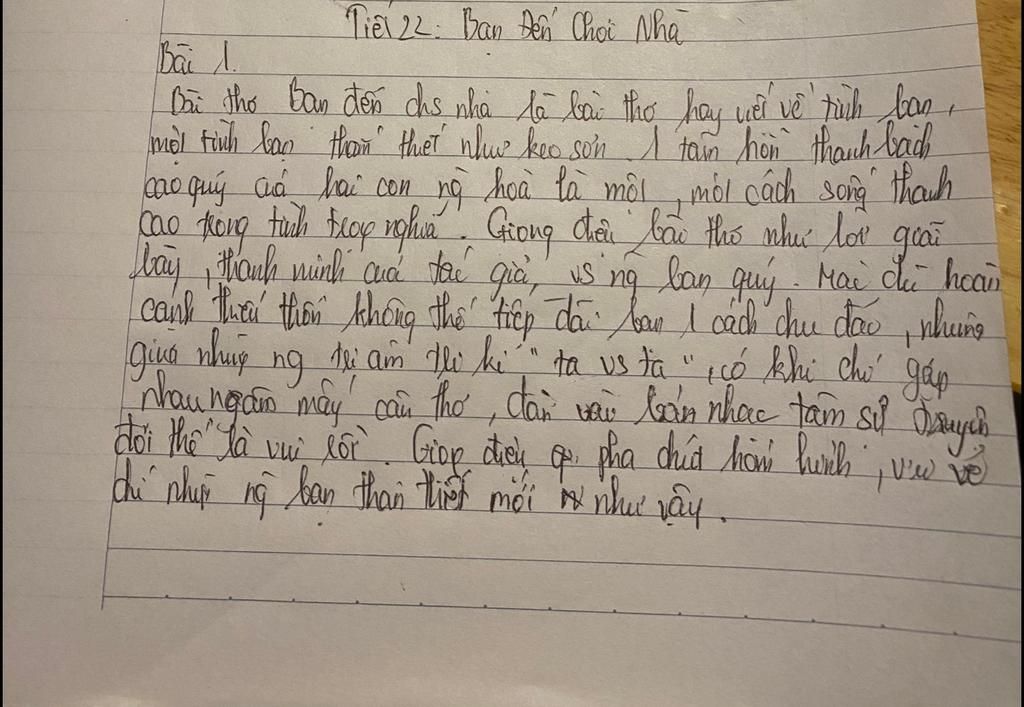 Tiết 22: Bạn Đến Chơi Nhà
Bài 1.
Bài thơ Bạn đến chs nhà là bài thơ hay viết về tình bạn,
một tình bạn thân thiết như keo sơn. 1 tâm hồn thanh bạch
cao quý của hai con ng hoà là một, một cách sống thanh
cao trong tình trog nghĩa. Giọng điệu bài thơ như lời giãi
bày, thanh minh của tác giả, vs ng bạn quý. Mặc dù hoàn
cảnh thiếu thốn không thể tiếp đãi bạn 1 cách chu đáo, nhưng
giữa nhữg ng tri âm tri kỉ "ta vs ta", có khi chỉ gặp
nhau ngâm mấy câu thơ, đàn vài bản nhạc tâm sự chuyện
đời thế là vui rồi. Giọg điệu pha chút hóm hỉnh, vui vẻ
chỉ nhữg ng bạn thân thiết mới như vậy.